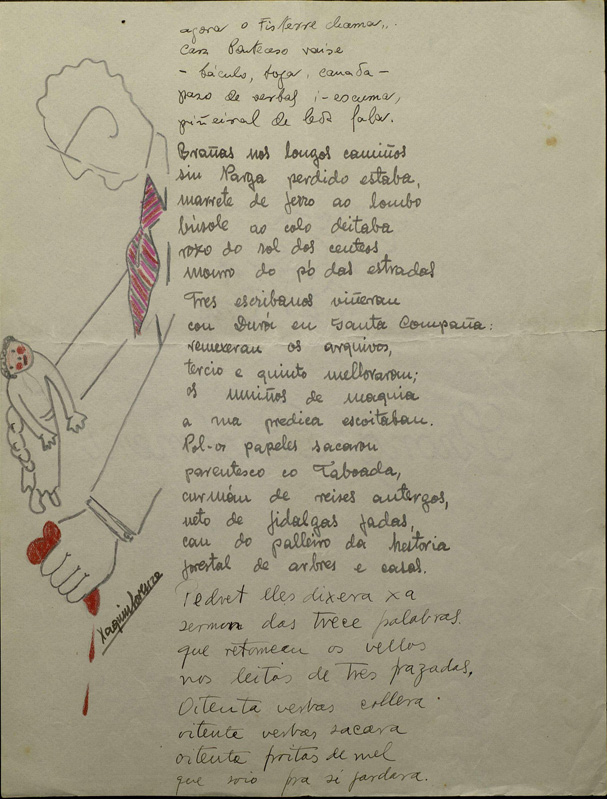 agora o Fisterre chama,..
cara Pontcaso vaise
- báculo, toga, canada -
pazo de verbas i-escuma,
piñeiral de leda fala.
Brañas nos longos camiños
sin Parga perdido estaba,
marrete de ferro ao lombo
búsole ao colo deitaba
roxo do sol dos centeos
mouro do pó das estradas
Tres escribanos viñeran
con Durói en Santa Compaña:
remexeran os arquivos,
tercio e quinto melloraron;
os muiños de maquia
a ma predica escoitaban.
Pol-os papeles sacarou
parentesco co Taboada,
curmán de reises antergos,
neto de fidalgas fadas,
can do palleiro da hestoria
forestal de arbres e casas.
Pedret elles dixera xa
sermon das trece palabras.
que retomean os vellos
nos leitos de tres pazadas.
Oitenta verbas collera
oitenta verbas sacara
oitenta froitas de mel
que soio pra si gardara.
Xaquin Lorenzo